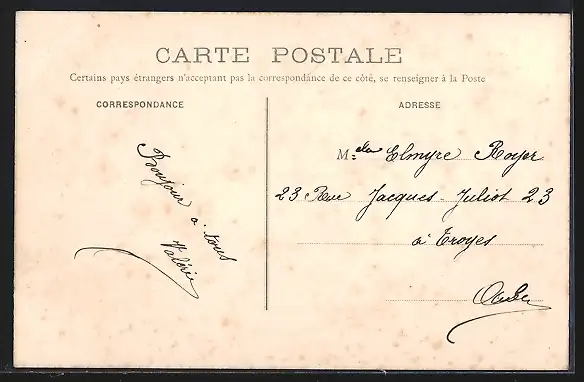 CARTE POSTALE
Certains pays étrangers n'acceptant pas la correspondance de ce côté, se renseigner à la Poste
CORRESPONDANCE
Bonjour à tous
Valérie
ADRESSE
M.elle Elmyre Royer
23 Rue Jacques-Juliot 23
à Troyes
Aube